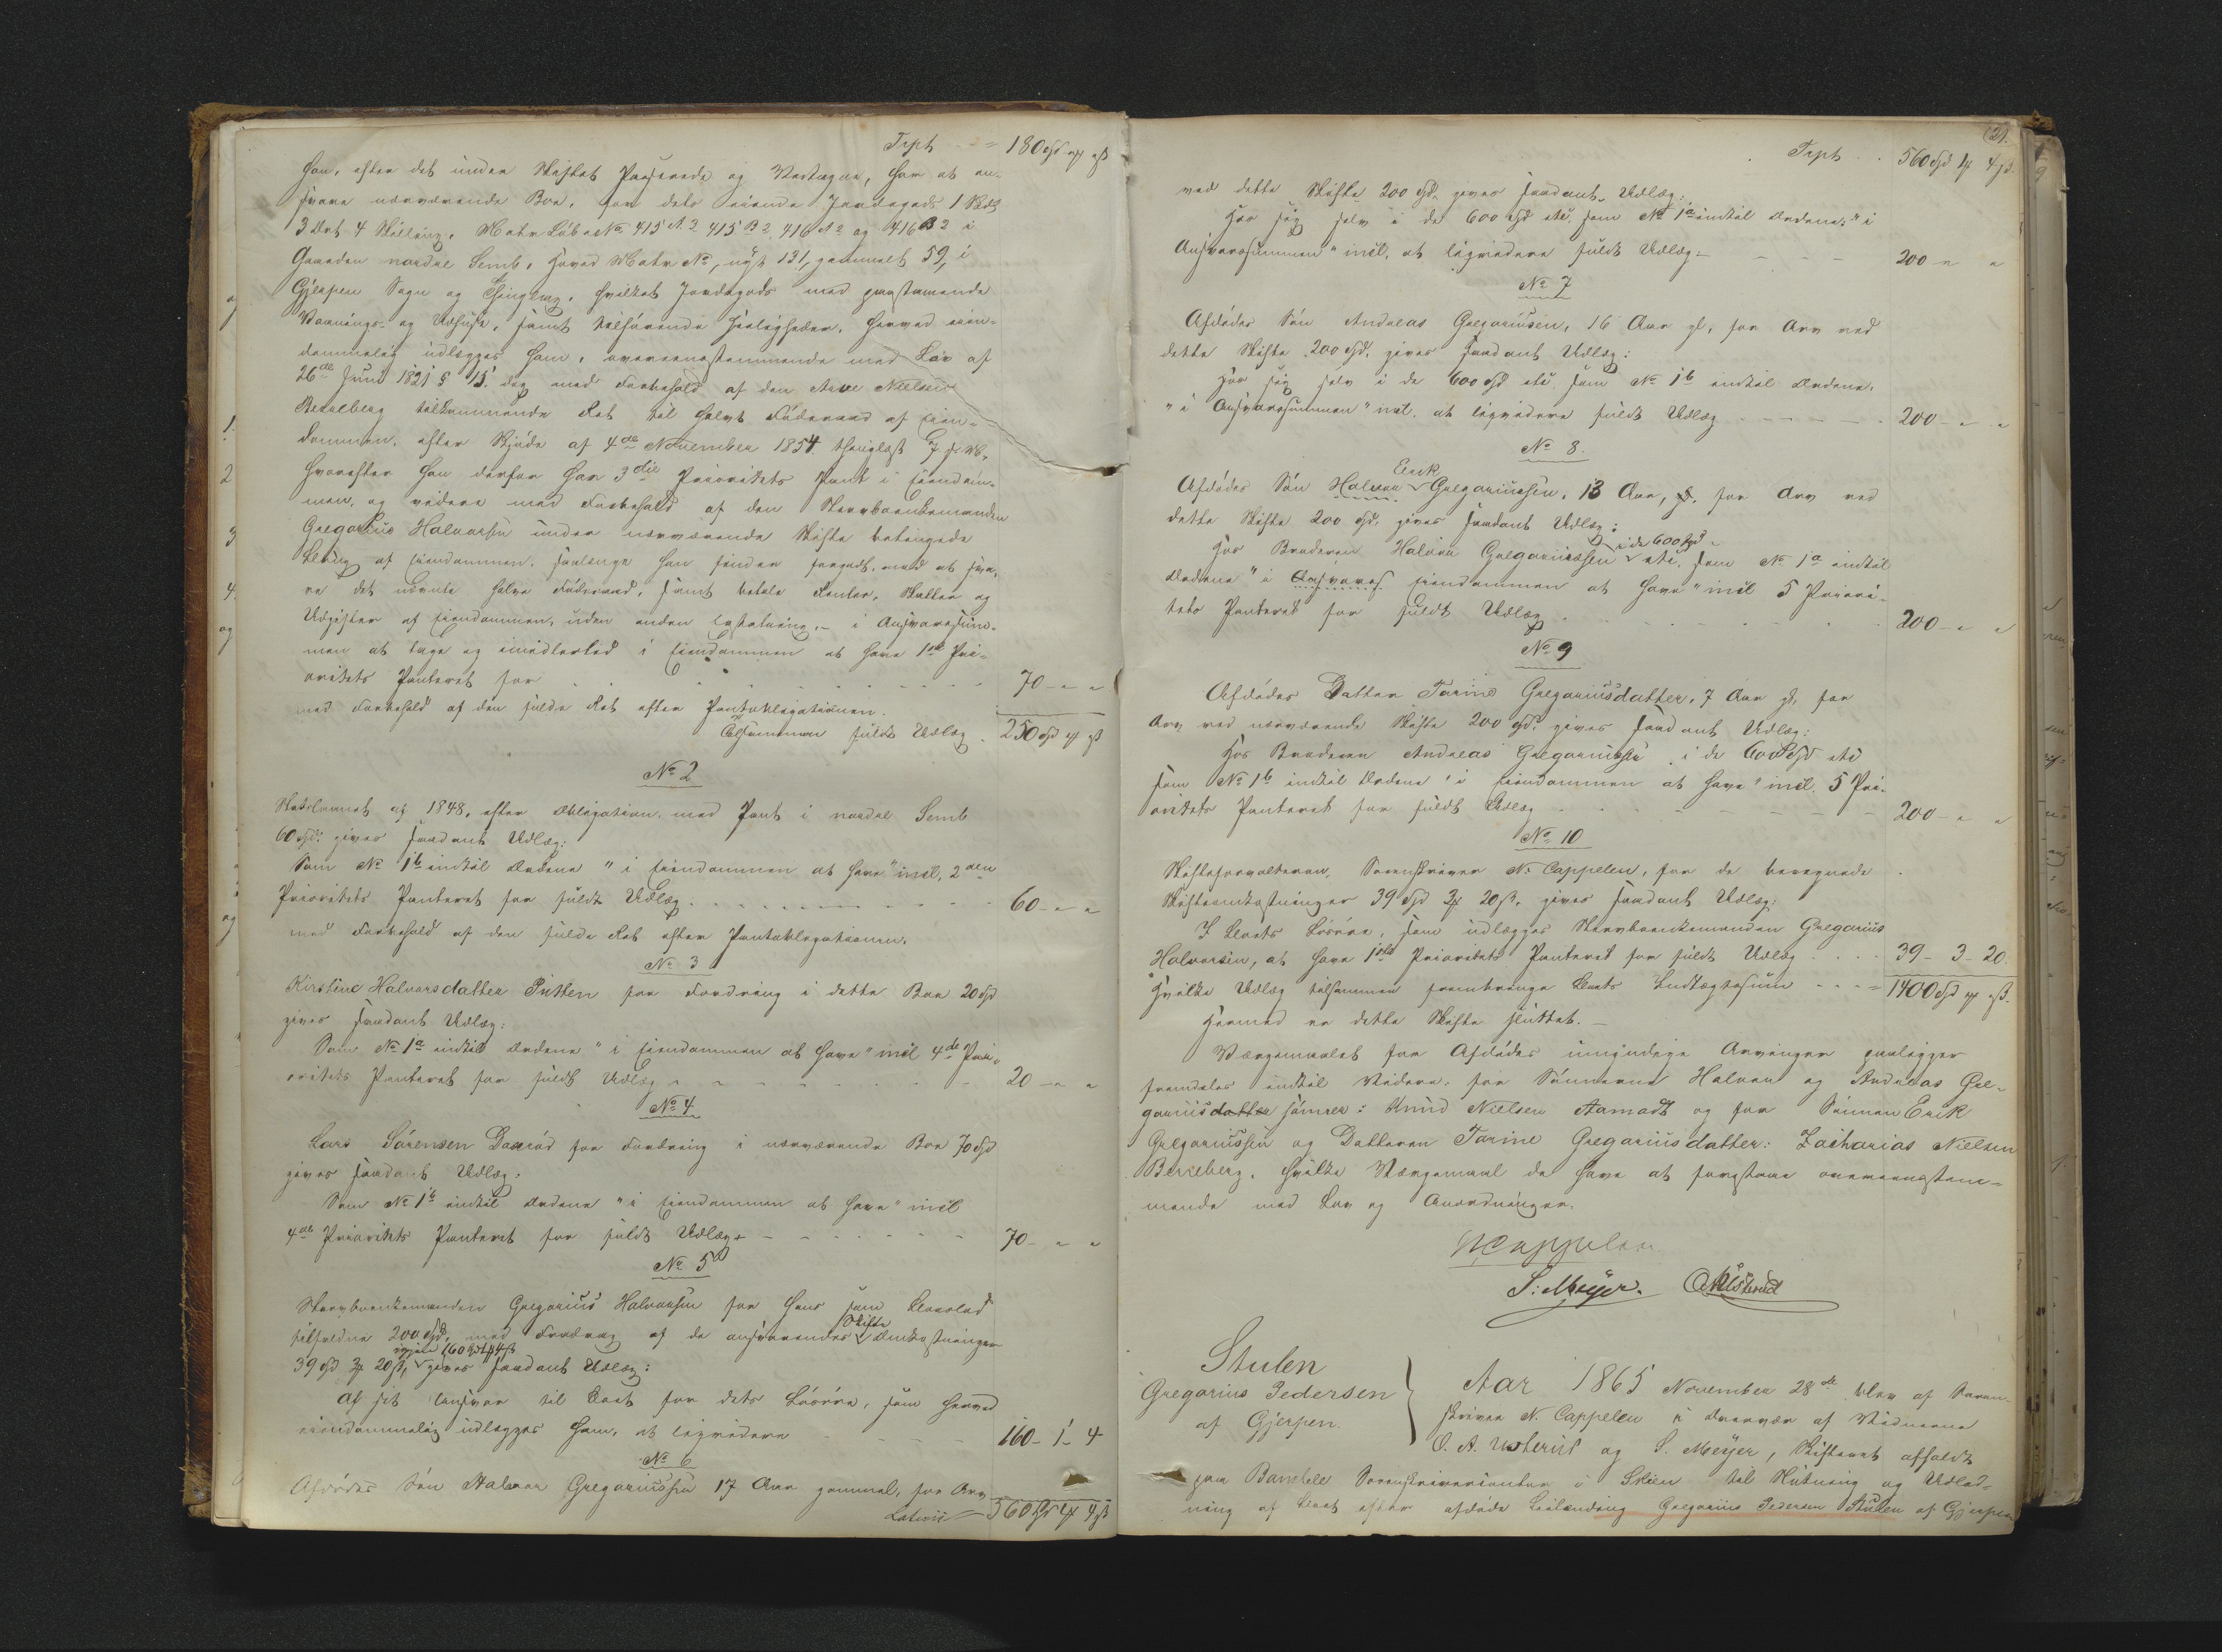 Trpt = 180 Spd " ß "
han, efter det under Skiftet Passerede og Vedtagne, har at an-
svare nærværende Boe, for dets eiende Jordegods 1 Skd
3 Ort 4 Skilling, Matr. Løbe No 415 A 2 415 B 2, 416 A 2 og 416 B 2 i
Gaarden nordre Semb, hvoraf Matr No, nyt 131, gammelt 59, i
Gjerpen Sogn og Thinglag, hvilket Jordegods med paastaaende
Vaanings- og Udhuse, samt tilhørende Herligheder, herved eien-
dommelig udlægges ham, overeensstemmende med Lov af
26de Juni 1821 § 15, dog med Forbehold af den Arve Nielsen
Berreberg tilkommende Ret til halvt Føderaad af Eien-
dommen, efter Skjøde af 4de November 1854 thinglæst
hvorefter han derfor har 3die Prioritets Pant i Eiendom-
men, og videre med Forbehold af den Stervboenkemanden
Gregorius Halvorsen under nærværende Skifte betingede
Brug af Eiendommen, saalænge han sender forgodt, mod at sva-
re det nævnte halve Føderaad, samt betale Renter, Skatter og
Udgifter af Eiendommen, uden anden Erstatning, - i Ansvarssum-
men at tage og imidlertid i Eiendommen at have 1ste Pri-
oritets Panteret for 70 - " "
med Forbehold af den fulde Ret efter Pantobligationen.
Tilsammen fuldt Udlæg . 250 Spd " ß
No 2
Statslaanet af 1848, efter Obligation, med Pant i nordre Semb
60 Spd: gives saadant Udlæg:
Som No 1b indtil Ordene "i Eiendommen at have" incl, 2den
Prioritets Panteret for fuldt Udlæg 60 - " "
med Forbehold af den fulde Ret efter Pantobligationen.
No 3
Kirstine Halvorsdatter Putten for Fordring i dette Boe 20 Spd
gives saadant Udlæg:
Som No 1a indtil Ordene "i Eiendommen at have" incl 4de Pri-
oritets Panteret for fuldt Udlæg 20 - " "
No 4
Lars Sørensen for Fordring i nærværende Boe 70 Spd
gives saadant Udlæg:
Som No 1b indtil Ordene "i Eiendommen at have" incl
4de Prioritets Panteret for fuldt Udlæg 70 - " "
No 5
Stervboenkemanden Gregorius Halvorsen for hans som Boeslod
Skifte
tilfaldne 200 Spd, med Fradrag af de ansvarendes Omkostninger
igjen 160 Spd 1 4 ß
39 Spd 3 20 ß, gives saadant Udlæg:
Af sit Ansvar til Boet for dets Løsøre, som herved
eiendommelig udlægges ham, at ligvidere 160 - 1 - 4
No 6
Afdødes Søn Halvor Gregoriussen 17 Aar gammel, for Arv
Lateris = 560 Spd 1 4 ß
21.
Trpt . . 560 Spd 1 4 ß.
ved dette Skifte 200 Spd, gives saadant Udlæg:
Hos sig selv i de 600 Spd etc. som No 1a indtil Ordene "i
Ansvarssummen" incl, at ligvidere fuldt Udlæg - 200 - " "
No 7
Afdødes Søn Andreas Gregoriussen, 16 Aar gl, for Arv ved
dette Skifte 200 Spd, gives saadant Udlæg:
Hos sig selv i de 600 Spd etc. som No 1b indtil Ordene,
"i Ansvarssummen" incl, at ligvidere fuldt Udlæg 200 - " "
No 8.
Erik
Afdødes Søn Halvor Gregoriussen, 13 Aar, gl, for Arv ved
dette Skifte 200 Spd, gives saadant Udlæg:
i de 600 Spd
Hos Broderen Halvor Gregoriussen etc. som No 1a indtil
Ordene "i Eiendommen at have" incl 5 Priori-
tets Panteret for fuldt Udlæg 200 - " "
No 9
Afdødes Datter Tarine Gregoriusdatter, 7 Aar gl, for
Arv ved nærværende Skifte 200 Spd, gives saadant Udlæg:
Hos Broderen Andreas Gregoriussen, i de 600 Spd etc
som No 1b indtil Ordene "i Eiendommen at have" incl. 5 Pri-
oritets Panteret for fuldt Udlæg 200 - " "
No 10
Skifteforvalteren, Sorenskriver N. Cappelen, for de beregnede
Skifteomkostninger 39 Spd 3 20 ß, gives saadant Udlæg:
I Boets Løsøre, som udlægges Stervboenkemanden Gregorius
Halvorsen, at have 1ste Prioritets Panteret for fuldt Udlæg . . . . 39 - 3 - 20
Hvilke Udlæg tilsammen frembringe Boets Indtægtssum - - - = 1400 Spd " ß.
Hermed er dette Skifte sluttet. -
Værgemaalet for Afdødes umyndige Arvinger paalægges
fremdeles indtil Videre: for Sønnerne Halvor og Andreas Gre-
goriusdatter sønner: Knud Nielsen Aamodt og for Sønnen Erik
Gregoriussen og Datteren Tarine Gregoriusdatter: Zacharias Nielsen
Berreberg, hvilke Værgemaal de have at forestaae overeensstem-
mende med Lov og Anordninger.
NCappelen
S: Meyer.
Stulen
Gregorius Pedersen
af Gjerpen.
Aar 1865 November 28de blev af Soren-
skriver N. Cappelen i Overvær af Vidnerne
O. A. og S. Meyer, Skifteret afholdt
paa Bamble Sorenskrivercontor i Skien til Slutning og Udlod-
ning af Boet efter afdøde Leilænding Gregorius Pedersen Stulen af Gjerpen